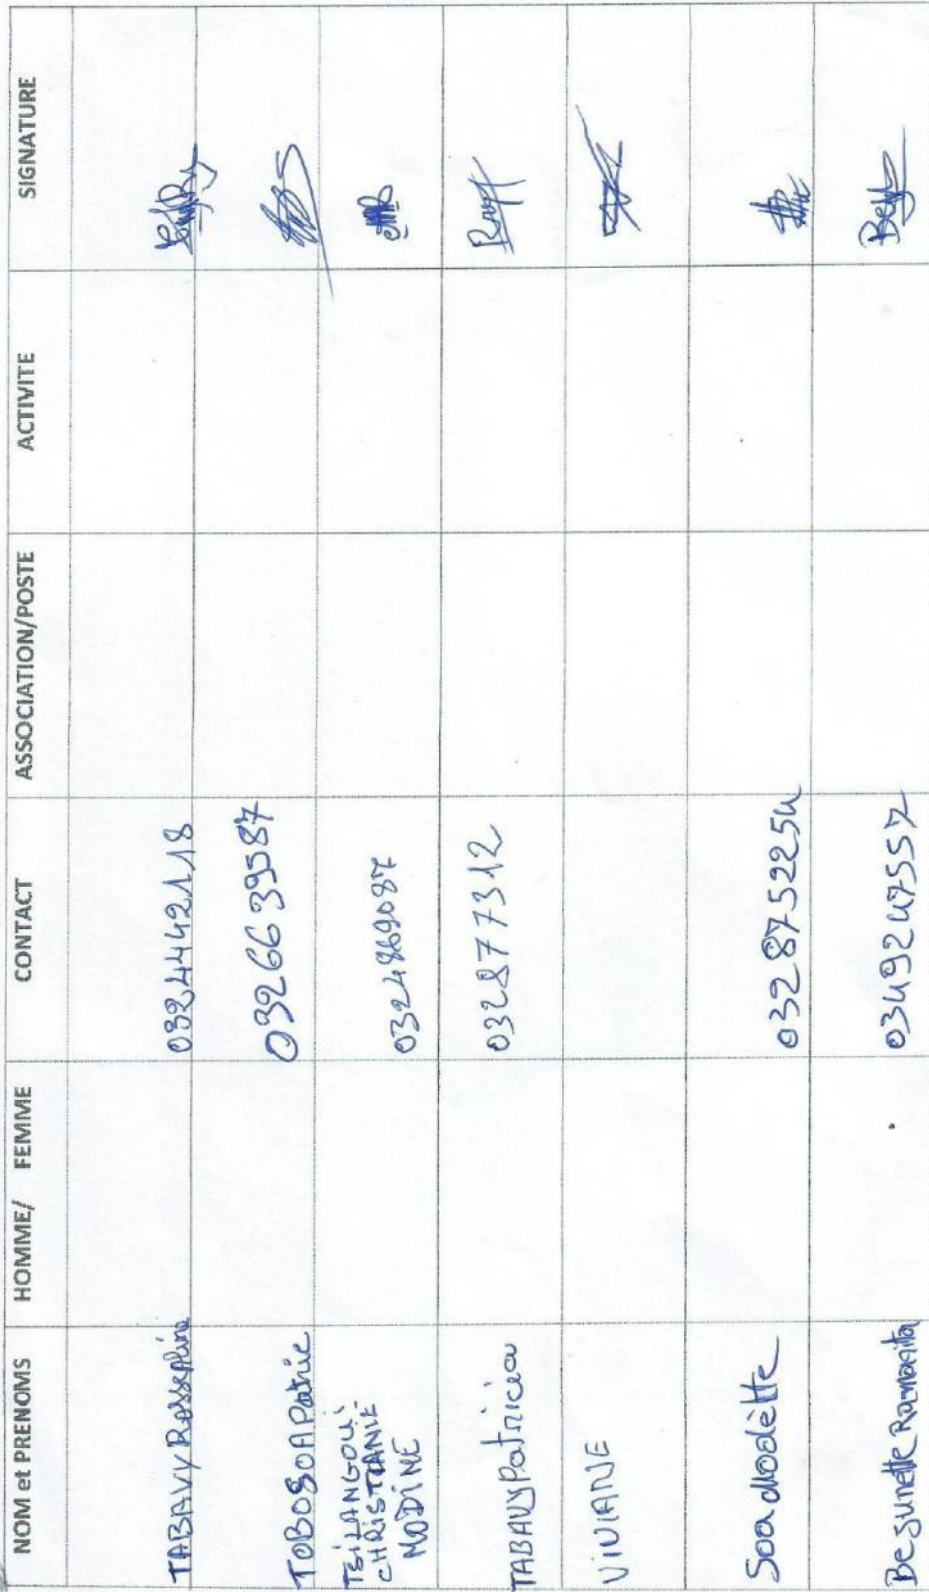 NOM et PRENOMS HOMME/ FEMME CONTACT ASSOCIATION/POSTE ACTIVITE SIGNATURE
TABAVY Rossephine 0324442118
TOBOSOA Patric 0326639587
TSILANGOUI
CHRISTIANIE
MODINE 0324869087
TABAVY Patricia 032877312
ViViANE
Soa dodètte 0328752254
Be Junette Ramanita 0349247557